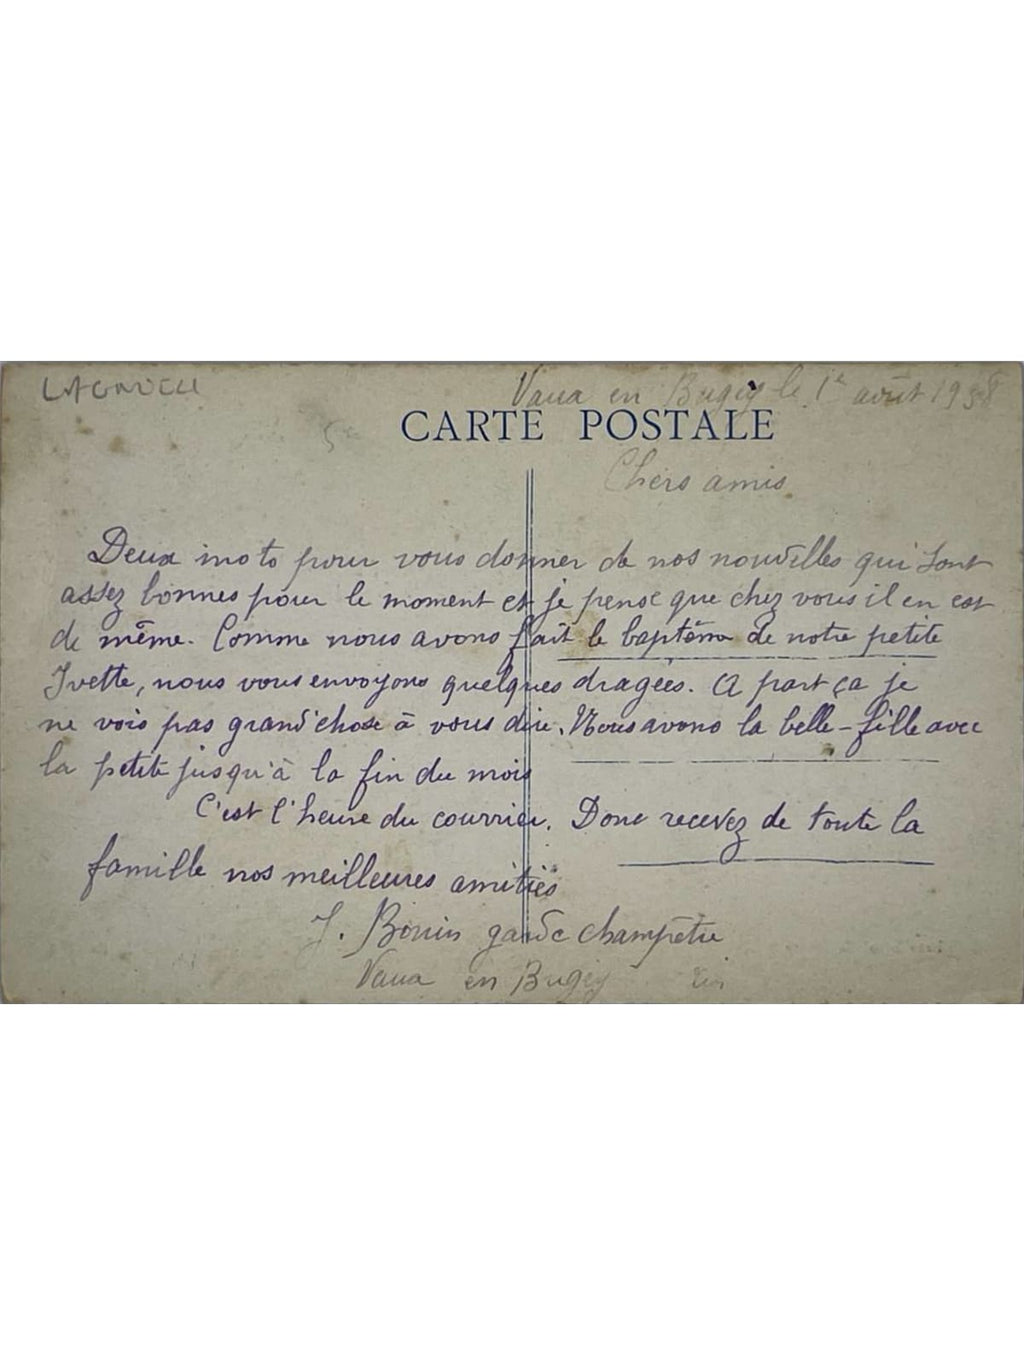 Vaux en Bugey le 1e août 1938
CARTE POSTALE
Chers amis
Deux mots pour vous donner de nos nouvelles qui sont
assez bonnes pour le moment et je pense que chez vous il en est
de même. Comme nous avons fait le baptême de notre petite
Ivette, nous vous envoyons quelques dragées. A part ça je
ne vois pas grand'chose à vous dire. Nous avons la belle-fille avec
la petite jusqu'à la fin du mois
C'est l'heure du courrier. Donc recevez de toute la
famille nos meilleures amitiés
J. garde champêtre
Vaux en Bugey